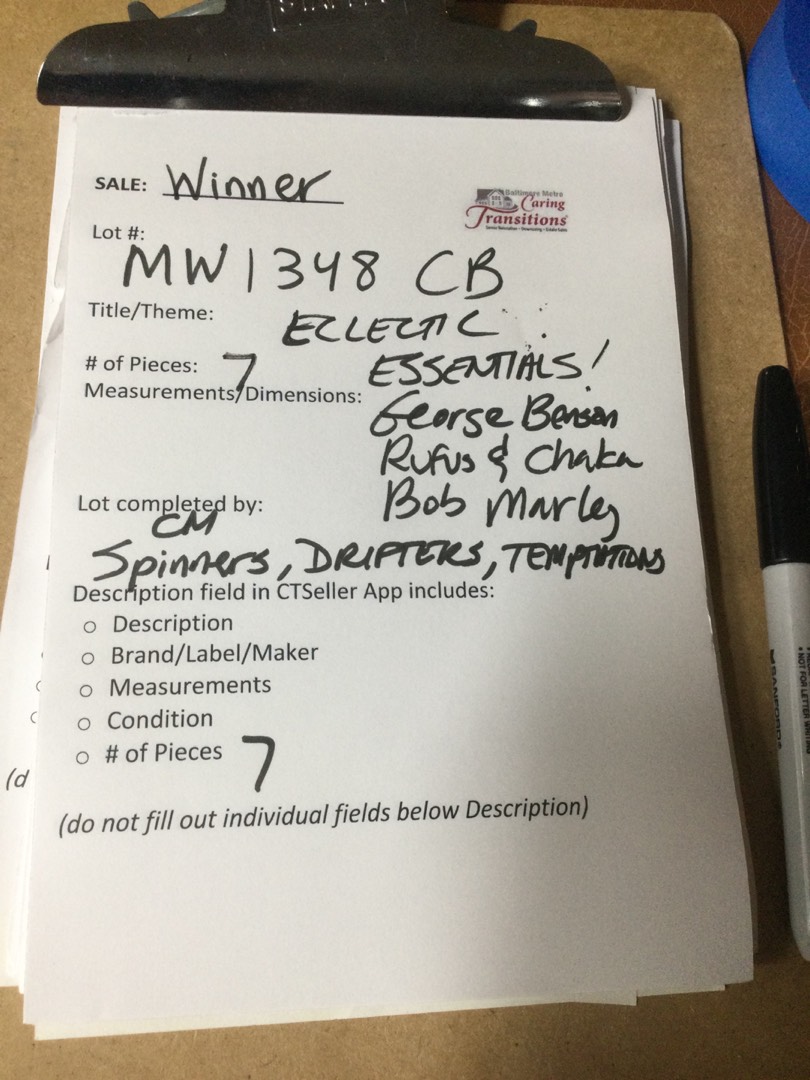 SALE: Winner
Baltimore Metro
Caring
Transitions
Lot #:
MW1348 CB
Title/Theme:
ECLECTIC
# of Pieces: 7 ESSENTIALS!
Measurements/Dimensions:
George Benson
Rufus & Chaka
Lot completed by: Bob Marley
CM
Spinners, DRIFTERS, TEMPTATIONS
Description field in CTSeller App includes:
○ Description
○ Brand/Label/Maker
○ Measurements
○ Condition
○ # of Pieces 7
(d
(do not fill out individual fields below Description)